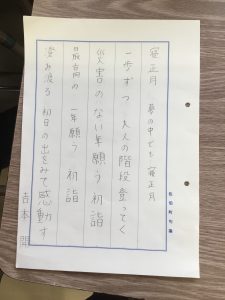 寝正月 夢の中でも 寝正月
一歩ずつ 大人の階段登ってく
災害のない年願う 初詣
最高の 一年願う 初詣
澄み渡る 初日の出をみて感動す
吉本